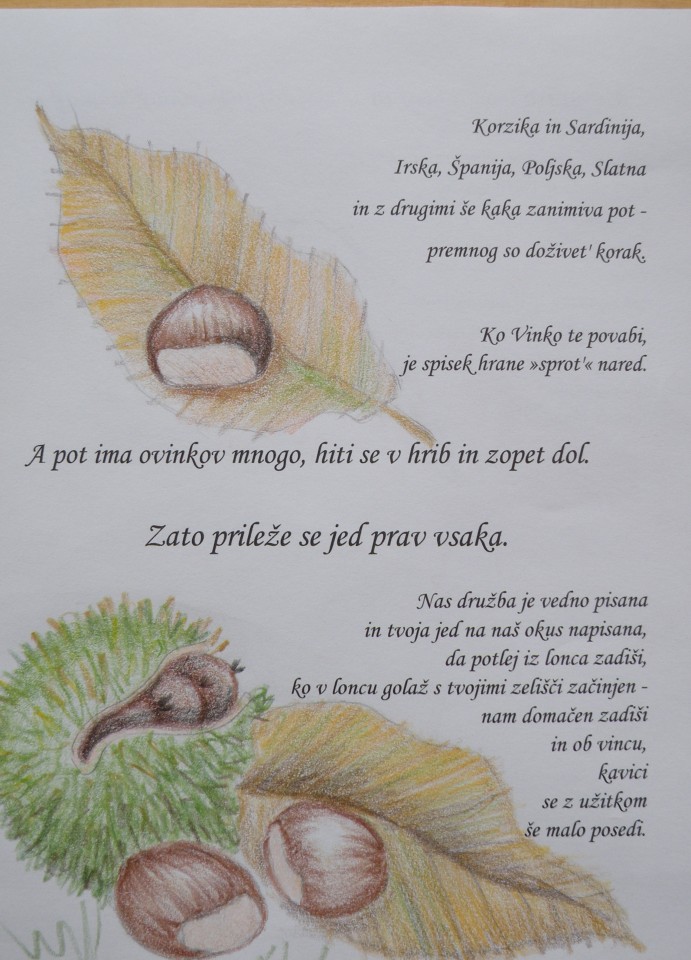 Korzika in Sardinija,
Irska, Španija, Poljska, Slatna
in z drugimi še kaka zanimiva pot -
premnog so doživet' korak.
Ko Vinko te povabi,
je spisek hrane »sprot'« nared.
A pot ima ovinkov mnogo, hiti se v hrib in zopet dol.
Zato prileže se jed prav vsaka.
Nas družba je vedno pisana
in tvoja jed na naš okus napisana,
da potlej iz lonca zadiši,
ko v loncu golaž s tvojimi zelišči začinjen -
nam domačen zadiši
in ob vincu,
kavici
se z užitkom
še malo posedi.